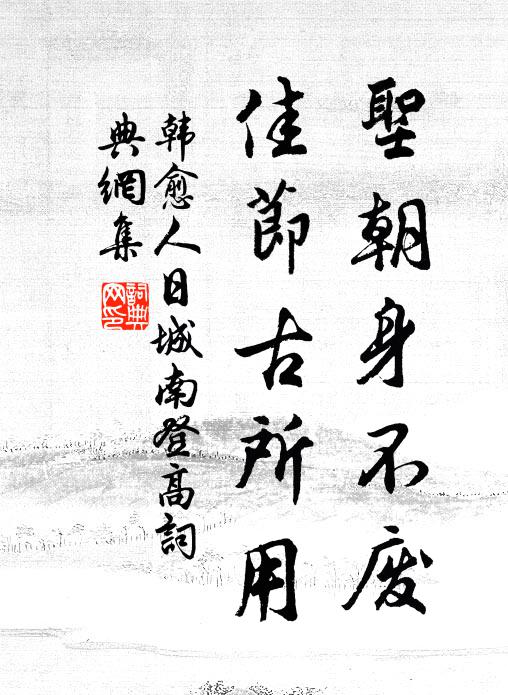 聖朝身不廢
佳節古所用
韓愈人日城南登高詞
典網集
詞典
网印